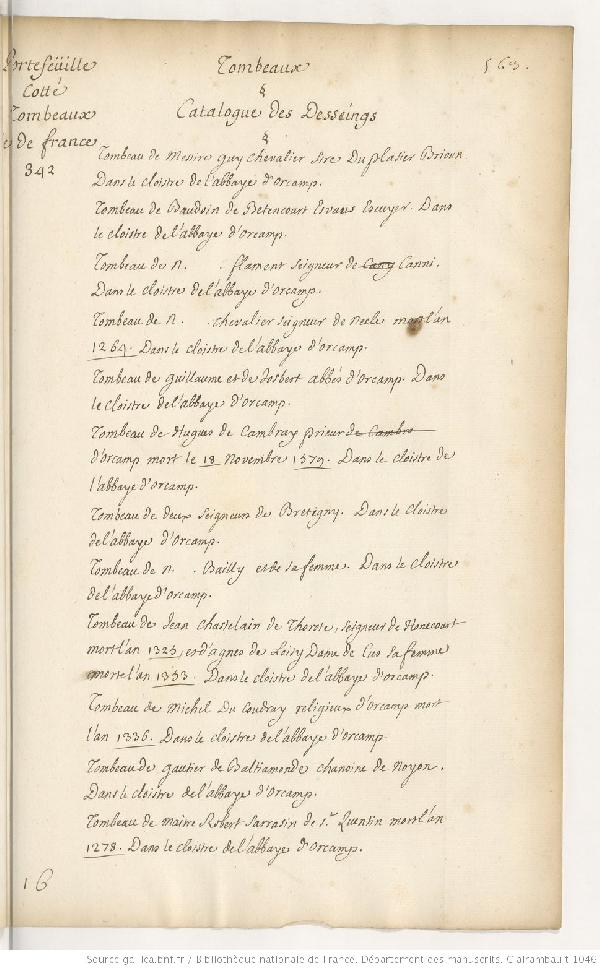 Portefeüille
Cotté
Tombeaux
de france
342
Tombeaux
§
Catalogue des Desseings
§
563.
Tombeau de Messire guy Chevalier Sire Du plasier Brionn
Dans le cloistre de l'abbaye d'Orcamp.
Tombeau de Baudoin de Betencourt Escuyer. Dans
le cloistre de l'abbaye d'Orcamp.
Tombeau de N. . flament seigneur de Cany Canni.
Dans le cloistre de l'abbaye d'Orcamp.
Tombeau de N. . chevalier seigneur de Neele mort l'an
1264. Dans le cloistre de l'abbaye d'Orcamp.
Tombeau de guillaume et de Josbert abbés d'Orcamp. Dans
le cloistre de l'abbaye d'Orcamp.
Tombeau de Hugues de Cambray prieur de Cambro
d'orcamp mort le 18 Novembre 1379. Dans le cloistre de
l'abbaye d'Orcamp.
Tombeau de deux seigneurs de Bretigny. Dans le Cloistre
de l'abbaye d'Orcamp.
Tombeau de N. . Bailly et de sa femme. Dans le Cloistre
de l'abbaye d'orcamp.
Tombeau de Jean Chastelain de Thorote, seigneur de Honecourt
mort l'an 1323, et d'agnes de Loisy Dame de sa femme
morte l'an 1333. Dans le cloistre de l'abbaye d'orcamp.
Tombeau de Michel Du Coudray religieux d'Orcamp mort
l'an 1336. Dans le cloistre de l'abbaye d'Orcamp.
Tombeau de gautier de Baltiamonde chanoine de Noyon.
Dans le cloistre de l'abbaye d'Orcamp.
Tombeau de maitre Robert Sarrasin de St. Quentin mort l'an
1278. Dans le cloistre de l'abbaye d'Orcamp.
16
Source gallica.bnf.fr / Bibliothèque nationale de France. Département des manuscrits. Clairambault 1046